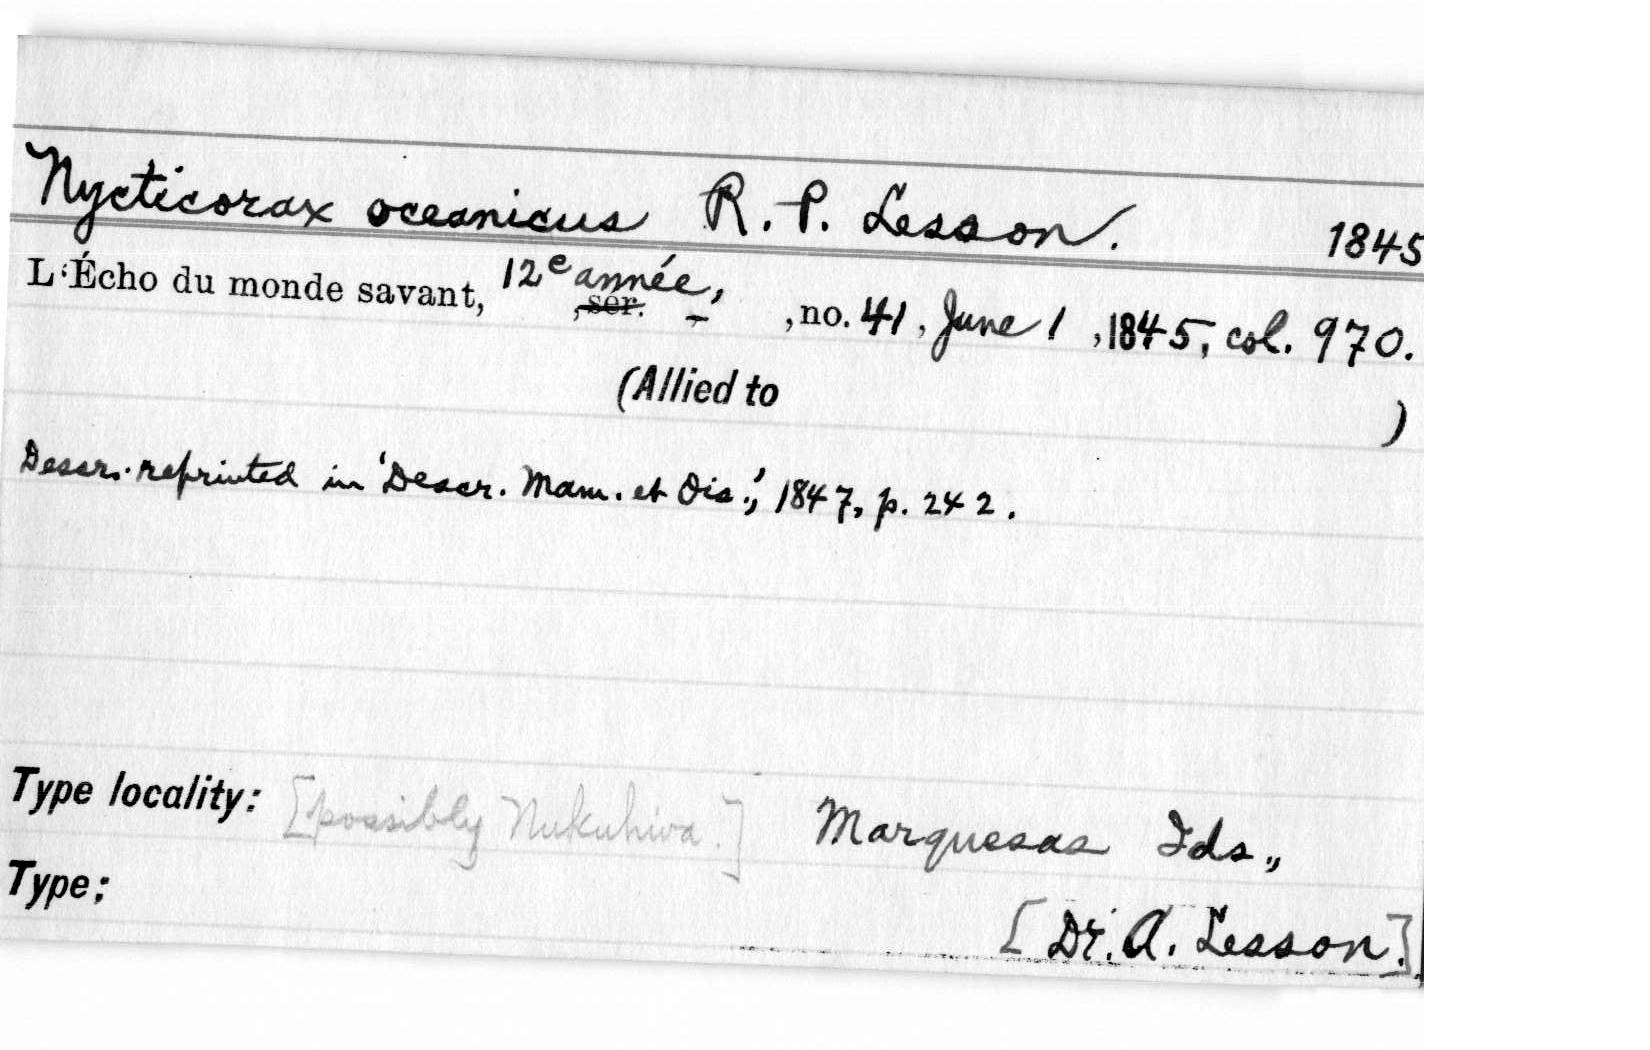 Nycticorax oceanicus R. P. Lesson. 1845
L'Écho du monde savant, 12e année, ,ser. – ,no. 41, June 1 ,1845, col. 970.
(Allied to )
Descr. reprinted in 'Descr. Mam. et Ois.', 1847, p. 242.
Type locality: [possibly Nukuhiva.] Marquesas Ids.,
Type:
[Dr. A. Lesson.]